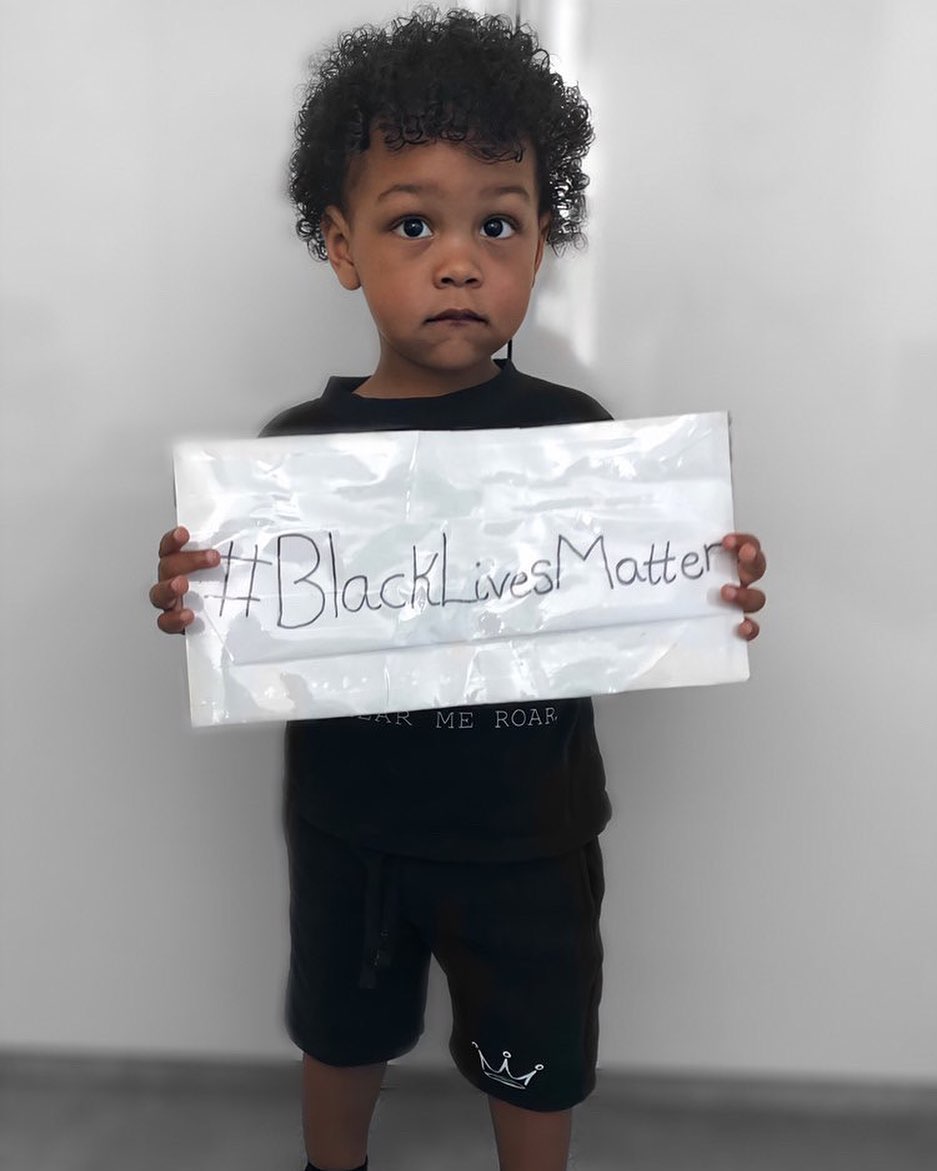 #BlackLivesMatter
ME ROAR